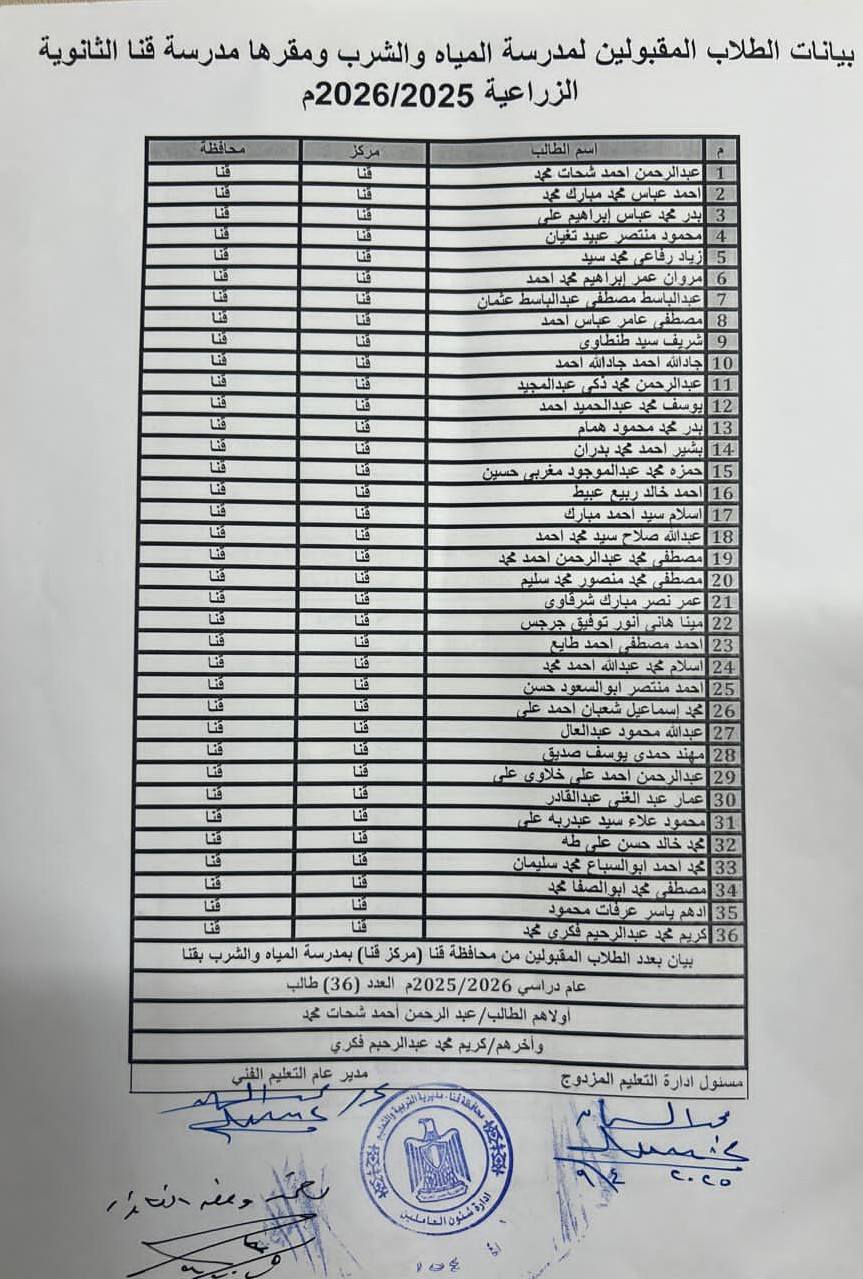 بيانات الطلاب المقبولين لمدرسة المياه والشرب ومقرها مدرسة قنا الثانوية
الزراعية 2026/2025م
م اسم الطالب مركز محافظة
1 عبدالرحمن احمد شحات محمد قنا قنا
2 احمد عباس محمد مبارك محمد قنا قنا
3 بدر محمد عباس إبراهيم على قنا قنا
4 محمود منتصر عبيد تغيان قنا قنا
5 زياد رفاعى محمد سيد قنا قنا
6 مروان عمر إبراهيم محمد احمد قنا قنا
7 عبدالباسط مصطفى عبدالباسط عثمان قنا قنا
8 مصطفى عامر عباس احمد قنا قنا
9 شريف سيد طنطاوى قنا قنا
10 جادالله احمد جادالله احمد قنا قنا
11 عبدالرحمن محمد ذكى عبدالمجيد قنا قنا
12 يوسف محمد عبدالحميد احمد قنا قنا
13 بدر محمد محمود همام قنا قنا
14 بشير احمد محمد بدران قنا قنا
15 حمزه محمد عبدالموجود مغربى حسين قنا قنا
16 احمد خالد ربيع عبيط قنا قنا
17 اسلام سيد احمد مبارك قنا قنا
18 عبدالله صلاح سيد محمد احمد قنا قنا
19 مصطفى محمد عبدالرحمن احمد محمد قنا قنا
20 مصطفى محمد منصور محمد سليم قنا قنا
21 عمر نصر مبارك شرقاوى قنا قنا
22 مينا هانى أنور توفيق جرجس قنا قنا
23 احمد مصطفى احمد طايع قنا قنا
24 اسلام محمد عبدالله احمد محمد قنا قنا
25 احمد منتصر ابوالسعود حسن قنا قنا
26 محمد إسماعيل شعبان احمد على قنا قنا
27 عبدالله محمود عبدالعال قنا قنا
28 مهند حمدى يوسف صديق قنا قنا
29 عبدالرحمن احمد على خلاوى على قنا قنا
30 عمار عبد الغنى عبدالقادر قنا قنا
31 محمود علاء سيد عبدربه على قنا قنا
32 محمد خالد حسن على طه قنا قنا
33 محمد احمد ابوالسباع محمد سليمان قنا قنا
34 مصطفى محمد ابوالصفا محمد قنا قنا
35 ادهم ياسر عرفات محمود قنا قنا
36 كريم محمد عبدالرحيم فكري محمد قنا قنا
بيان بعدد الطلاب المقبولين من محافظة قنا (مركز قنا) بمدرسة المياه والشرب بقنا
عام دراسي 2025/2026م العدد (36) طالب
أولاهم الطالب/عبد الرحمن أحمد شحات محمد
وأخرهم/كريم محمد عبدالرحيم فكري
مسئول ادارة التعليم المزدوج مدير عام التعليم الفني
محافظة قنا - مديرية التربية والتعليم
ادارة شئون العاملين
٩/٤ ٢٠٢٥